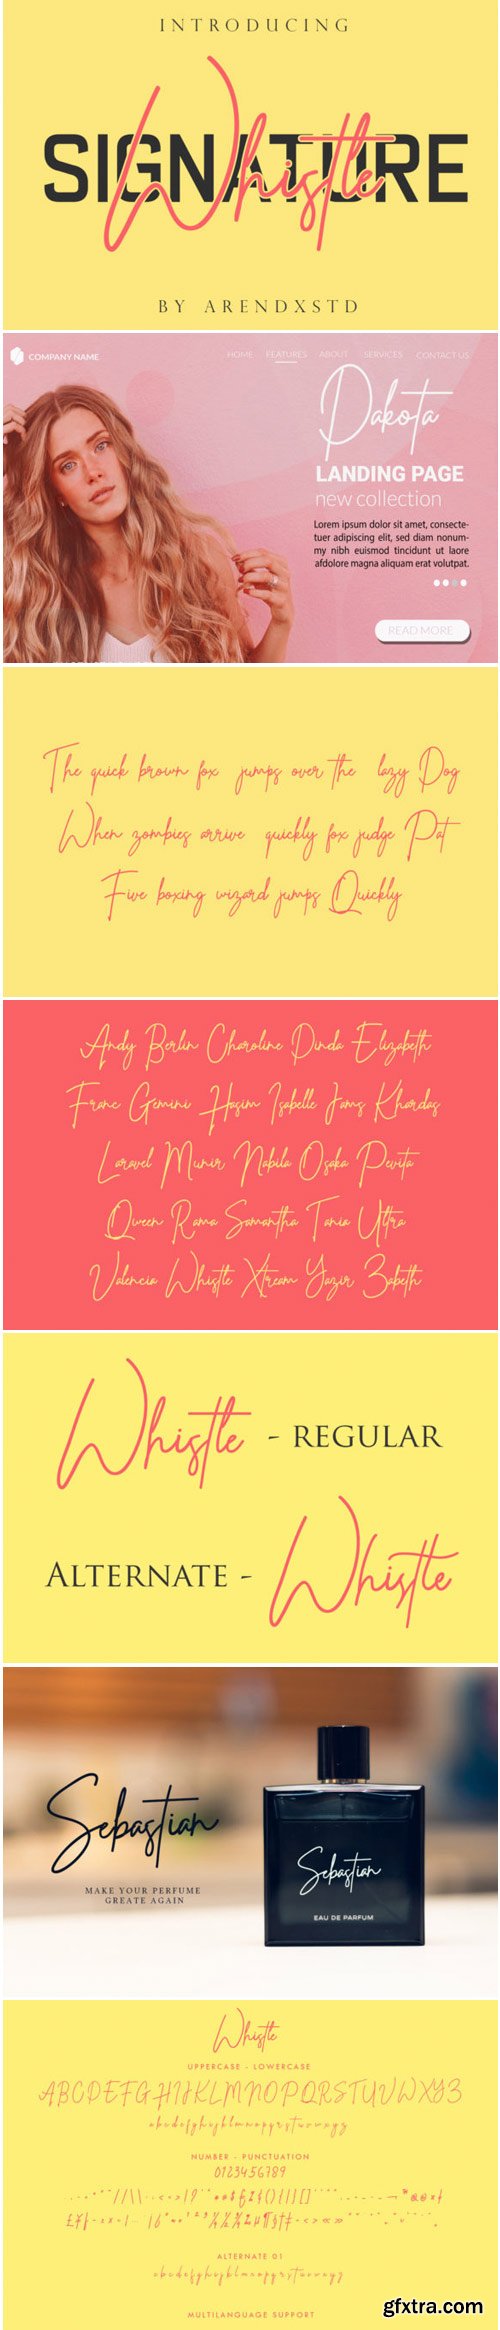 INTRODUCING
SIGNATURE
Whistle
BY ARENDXSTD
COMPANY NAME
HOME FEATURES ABOUT SERVICES CONTACT US
Dakota
LANDING PAGE
new collection
Lorem ipsum dolor sit amet, consecte-
tuer adipiscing elit, sed diam nonum-
my nibh euismod tincidunt ut laore
afdolore magna aliquam erat volutpat.
READ MORE
The quick brown fox jumps over the lazy Dog
When zombies arrive quickly fox judge Pat
Five boxing wizard jumps Quickly
Andy Berlin Charoline Dinda Elizabeth
Franc Gemini Hasim Isabelle Jams Khardas
Laravel Munir Nabila Osaka Pevita
Qween Rama Samantha Tania Ultra
Valencia Whistle Xtream Yazir Zabeth
Whistle - REGULAR
ALTERNATE - Whistle
Sebastian
MAKE YOUR PERFUME
GREATE AGAIN
Sebastian
EAU DE PARFUM
Whistle
UPPERCASE - LOWERCASE
ABCDEFGHIJKLMNOPQRSTUVWXYZ
abcdefghijklmnopqrstuvwxyz
NUMBER - PUNCTUATION
0123456789
ALTERNATE 01
abcdefghijklmnopqrstuvwxyz
MULTILANGUAGE SUPPORT
gfxtra.com